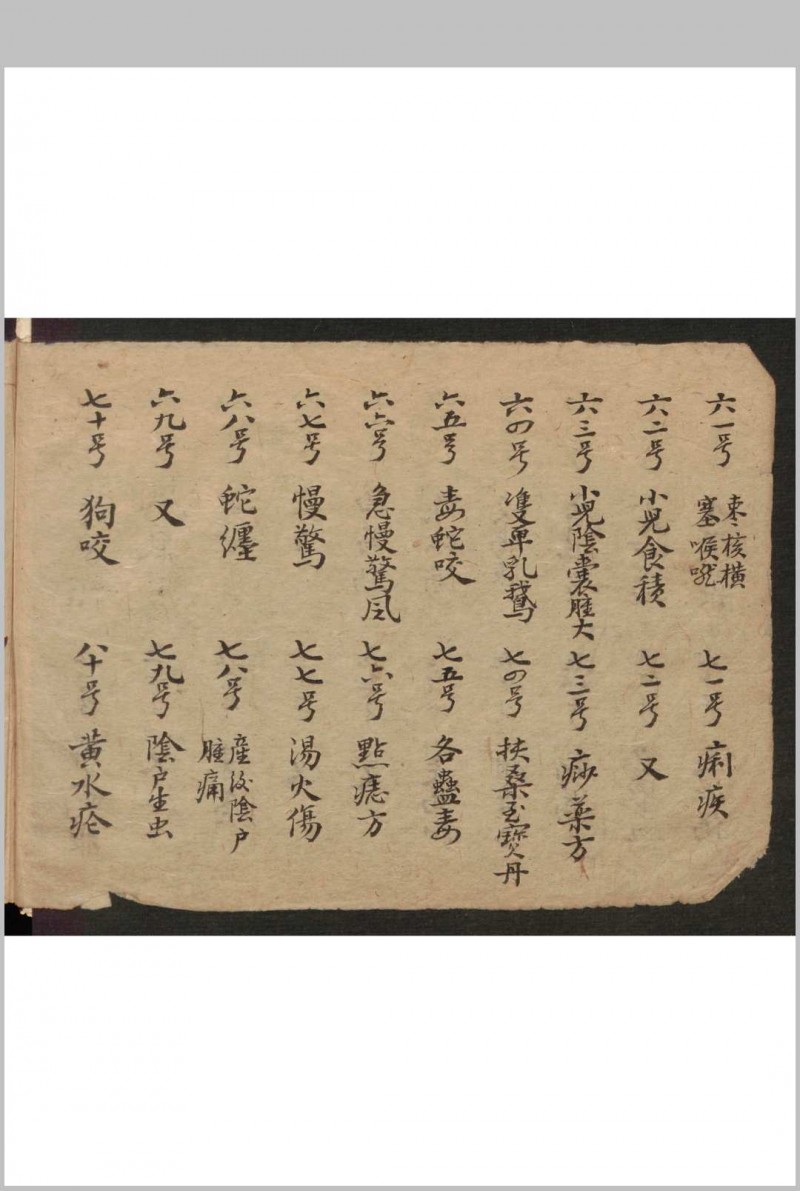 六一号 枣核横塞喉咙
六二号 小児食積
六三号 小児陰囊腫大
六四号 雙单乳鵝
六五号 毒蛇咬
六六号 急慢驚风
六七号 慢驚
六八号 蛇纏
六九号 又
七十号 狗咬
七一号 痢疾
七二号 又
七三号 痧藥方
七四号 扶桑至寶丹
七五号 各蠱毒
七六号 點痣方
七七号 湯火傷
七八号 産後陰户腫痛
七九号 陰户生虫
八十号 黄水疮